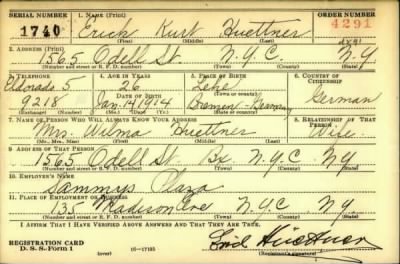 SERIAL NUMBER 1. NAME (Print) ORDER NUMBER
1740 Erich Kurt Huettner 4291
(First) (Middle) (Last)
2. ADDRESS (Print)
1565 Odell St. N.Y.C. N.Y.
(Number and street or R. F. D. number) (Town) (County) (State)
3. TELEPHONE 4. AGE IN YEARS 5. PLACE OF BIRTH 6. COUNTRY OF CITIZENSHIP
Eldorado 5 26 Lehe
DATE OF BIRTH (Town or county) German
9218 Jan. 14 1914 Bremen-Germany
(Exchange) (Number) (Mo.) (Day) (Yr.) (State or country)
7. NAME OF PERSON WHO WILL ALWAYS KNOW YOUR ADDRESS 8. RELATIONSHIP OF THAT PERSON
Mrs. Wilma Huettner Wife
(Mr., Mrs., Miss) (First) (Middle) (Last)
9. ADDRESS OF THAT PERSON
1565 Odell St. Bx. N.Y.C. NY
(Number and street or R. F. D. number) (Town) (County) (State)
10. EMPLOYER'S NAME
Sammys Plaza
11. PLACE OF EMPLOYMENT OR BUSINESS
135 Madison Ave NYC NY
(Number and street or R. F. D. number) (Town) (County) (State)
I AFFIRM THAT I HAVE VERIFIED ABOVE ANSWERS AND THAT THEY ARE TRUE.
REGISTRATION CARD
D. S. S. Form 1 (over) 16—17105 Erich Huettner